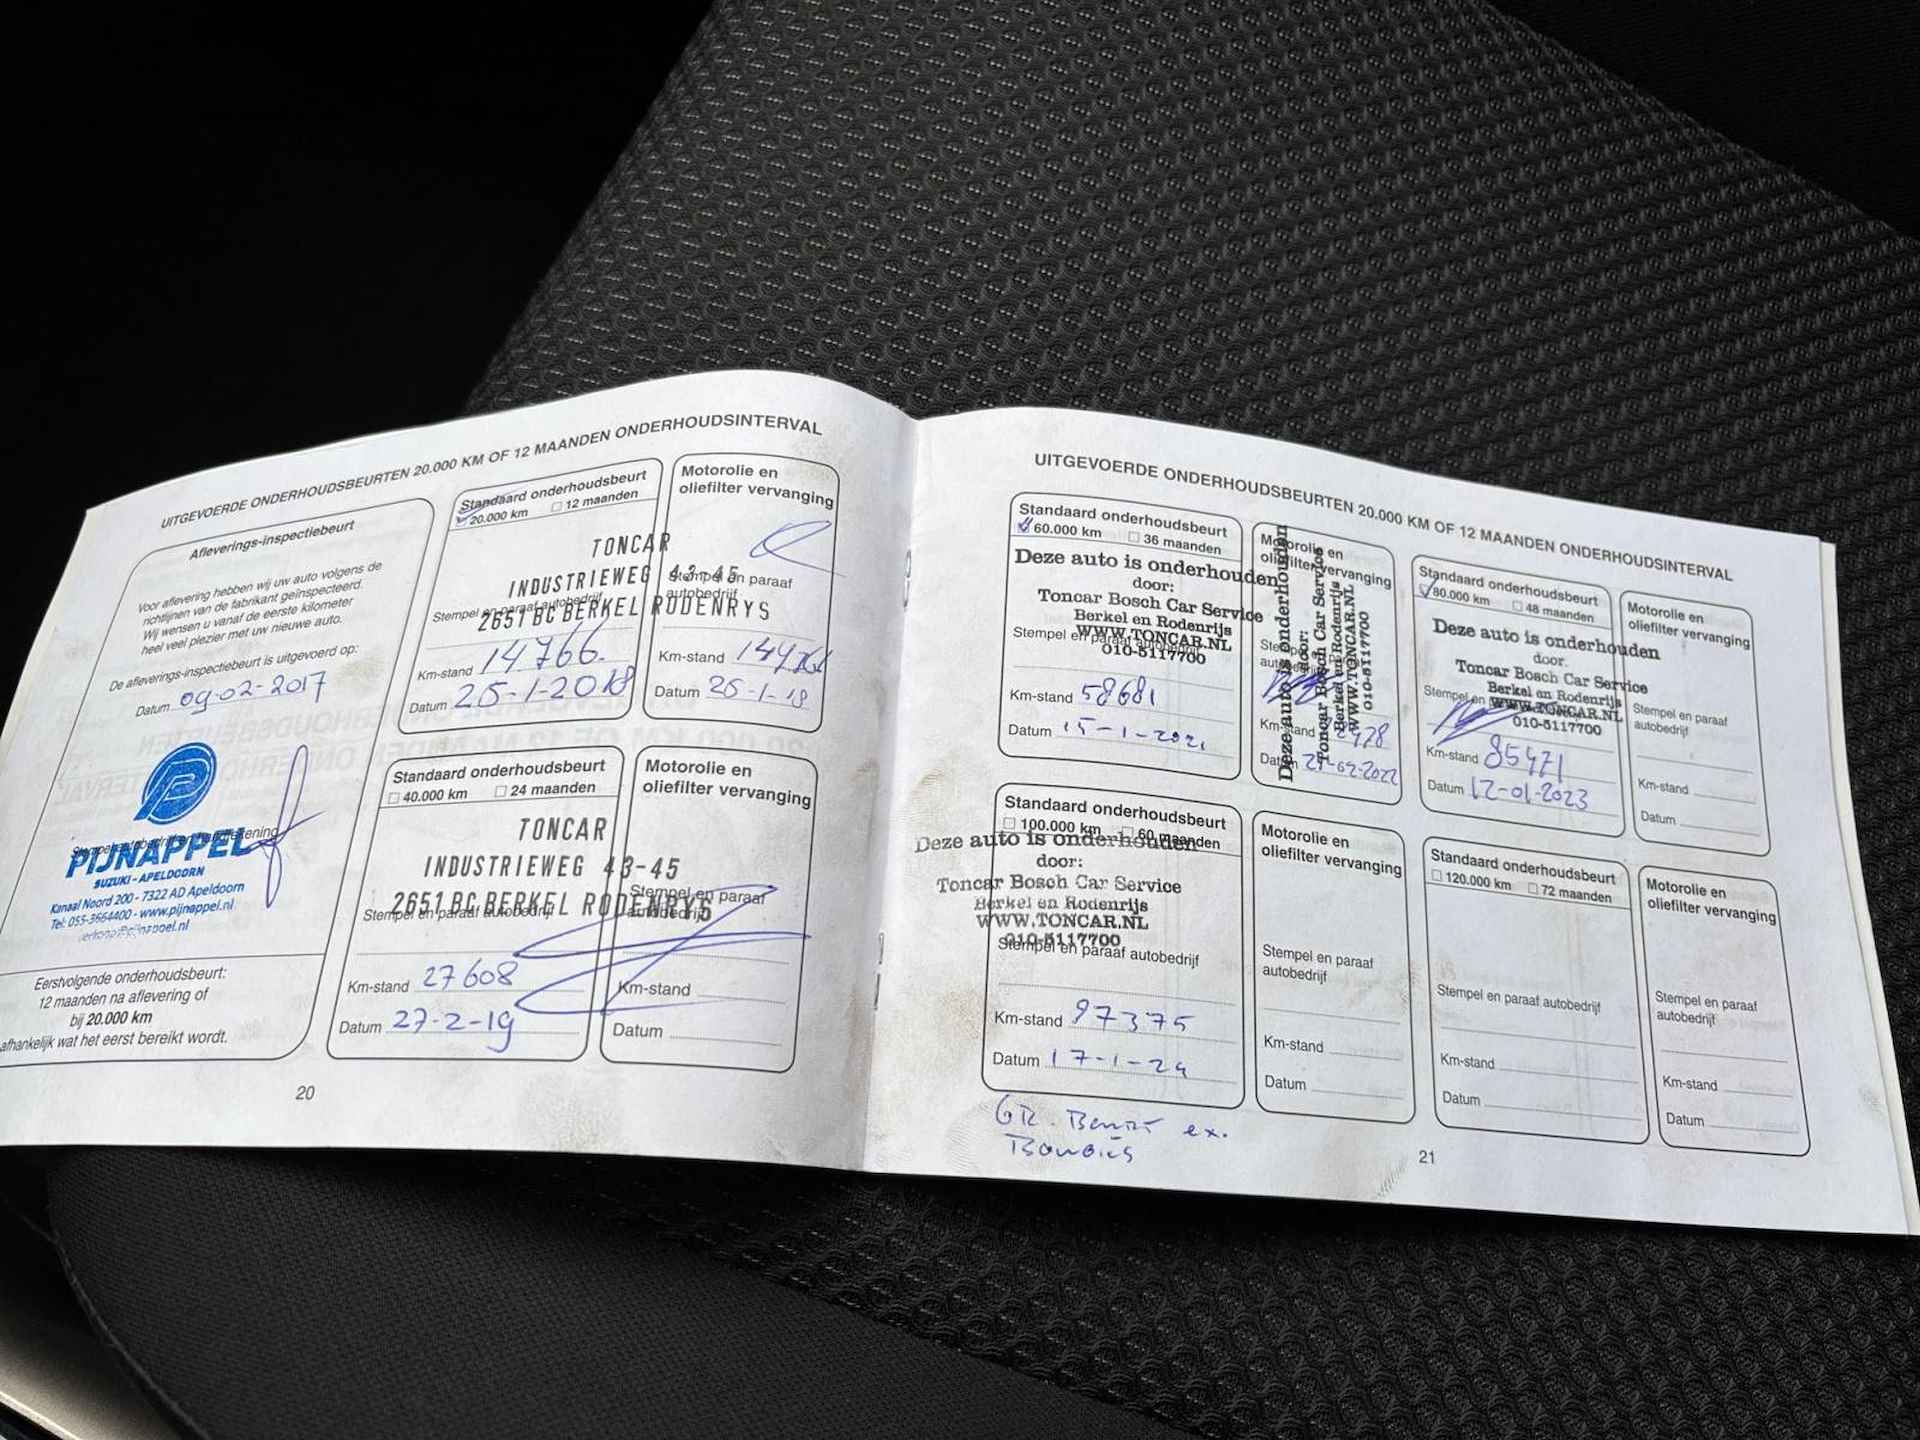 UITGEVOERDE ONDERHOUDSBEURTEN 20.000 KM OF 12 MAANDEN ONDERHOUDSINTERVAL
Afleverings-inspectiebeurt
Voor aflevering hebben wij uw auto volgens de
richtlijnen van de fabrikant geïnspecteerd.
Wij wensen u vanaf de eerste kilometer
heel veel plezier met uw nieuwe auto.
De afleverings-inspectiebeurt is uitgevoerd op:
Datum 09-02-2017
PIJNAPPEL
SUZUKI - APELDOORN
Kanaal Noord 200 - 7322 AD Apeldoorn
Tel: 055-3664400 - www.pijnappel.nl
Eerstvolgende onderhoudsbeurt:
12 maanden na aflevering of
bij 20.000 km
afhankelijk wat het eerst bereikt wordt.
Standaard onderhoudsbeurt
20.000 km 12 maanden
TONCAR
INDUSTRIEWEG 43-45
Stempel en paraaf autobedrijf
2651 BC BERKEL RODENRYS
Km-stand 14766.
Datum 25-1-2018
Motorolie en
oliefilter vervanging
Stempel en paraaf
autobedrijf
Km-stand
Datum 25-1-18
Standaard onderhoudsbeurt
40.000 km 24 maanden
TONCAR
INDUSTRIEWEG 43-45
2651 BC BERKEL RODENRYS
Stempel en paraaf autobedrijf
Km-stand 27608
Datum 27-2-19
Motorolie en
oliefilter vervanging
Stempel en paraaf
autobedrijf
Km-stand
Datum
20
UITGEVOERDE ONDERHOUDSBEURTEN 20.000 KM OF 12 MAANDEN ONDERHOUDSINTERVAL
Standaard onderhoudsbeurt
60.000 km 36 maanden
Deze auto is onderhouden
door:
Toncar Bosch Car Service
Berkel en Rodenrijs
WWW.TONCAR.NL
Stempel en paraaf autobedrijf
010-5117700
Km-stand 58681
Datum 15-1-2021
Motorolie en
oliefilter vervanging
Deze auto is onderhouden
door:
Toncar Bosch Car Service
Berkel en Rodenrijs
WWW.TONCAR.NL
010-5117700
Km-stand
Datum
Standaard onderhoudsbeurt
80.000 km 48 maanden
Deze auto is onderhouden
door.
Toncar Bosch Car Service
Berkel en Rodenrijs
WWW.TONCAR.NL
010-5117700
Km-stand 85471
Datum 12-01-2023
Motorolie en
oliefilter vervanging
Stempel en paraaf
autobedrijf
Km-stand
Datum
Standaard onderhoudsbeurt
100.000 km 60 maanden
Deze auto is onderhouden
door:
Toncar Bosch Car Service
Berkel en Rodenrijs
WWW.TONCAR.NL
010-5117700
Stempel en paraaf autobedrijf
Km-stand 97375
Datum 17-1-24
Motorolie en
oliefilter vervanging
Stempel en paraaf
autobedrijf
Km-stand
Datum
Standaard onderhoudsbeurt
120.000 km 72 maanden
Stempel en paraaf autobedrijf
Km-stand
Datum
Motorolie en
oliefilter vervanging
Stempel en paraaf
autobedrijf
Km-stand
Datum
GR. Beurt ex.
Bougies
21